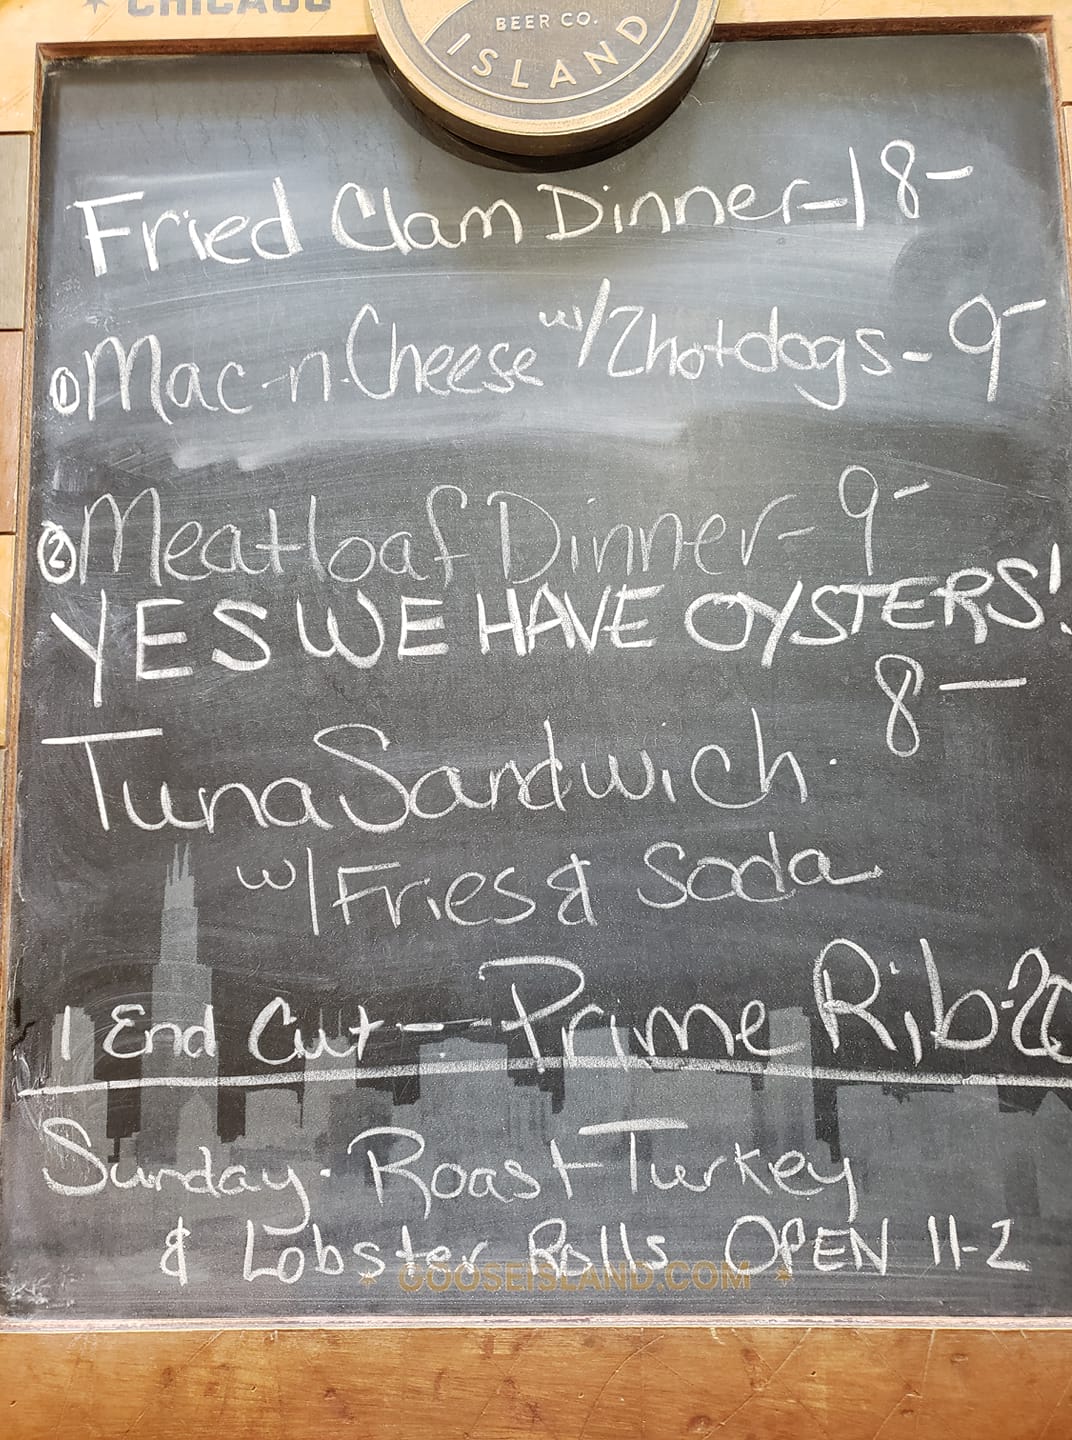 CHICAGO
BEER CO.
ISLAND
Fried Clam Dinner-18-
① Mac-n-Cheese w/2hotdogs-9-
② Meatloaf Dinner-9-
YES WE HAVE OYSTERS!
8—
Tuna Sandwich.
w/Fries & Soda
1 End Cut — Prime Rib-20
Sunday. Roast Turkey
& Lobster Rolls OPEN 11-2
GOOSEISLAND.COM